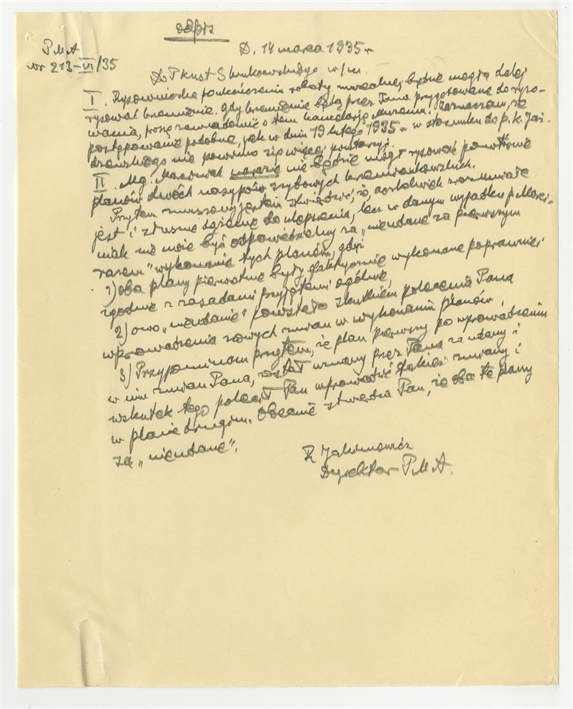 odpis
P.M.A
nr 213-VI/35
D. 14 marca 1935 r
Do P kust. Skukowskiego w/m.
I. Rysowniczka po ukończeniu roboty będzie mogła dalej
rysować krzemienie. Gdy krzemienie będą przez Pana przygotowane do ryso-
wania, proszę zawiadomić o tem kancelarję Muzeum. Zaznaczam, że
postępowanie podobne, jak w dniu 19 lutego 1935 r w stosunku do p. K. Jaż-
dżewskiego nie powinno się więcej powtarzyć.
II. Mg. Marciniak narazie nie będzie mógł rysować powtórnie
planów dwóch nasypów szybowych krzemionkowskich.
Przytem zmuszony jestem stwierdzić, że, aczkolwiek zrozumiałe
jest i słuszne dążenie do ulepszenia, lecz w danym wypadku p. Marci-
niak nie może być odpowiedzialny za „nieudane za pierwszym
razem" wykonanie tych planów, gdyż
1) oba plany pierwotne były faktycznie wykonane poprawnie i
zgodnie z zasadami przyjętemi ogólnie,
2) owo „nieudanie" powstało skutkiem polecenia Pana
wprowadzenia nowych zmian w wykonaniu planów,
3) Przypominam przytem, że plan pierwszy po wprowadzeniu
w nim zmian Pana, został uznany przez Pana za udany i
wskutek tego polecił Pan wprowadzić jakieś zmiany i
w planie drugim. Obecnie stwierdza Pan, że oba te plany
są „nieudane".
R Jakimowicz
Dyrektor P.M.A.